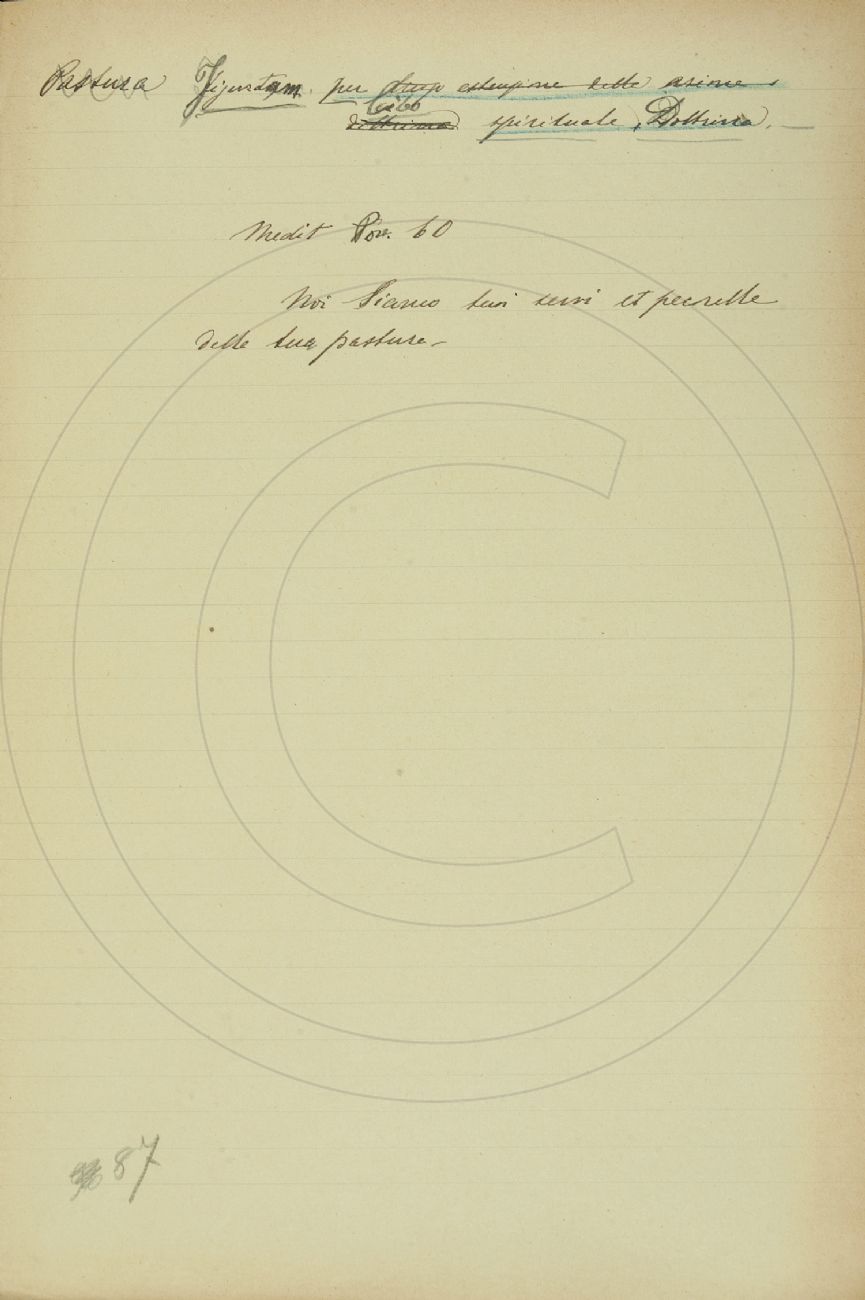 Pastura Figuratam. per estensione delle
Cibo
dottrina spirituale, Dottrina, —
Medit Pov. 60
Noi Siamo tuoi servi et pecorelle
delle tua pastura —
87